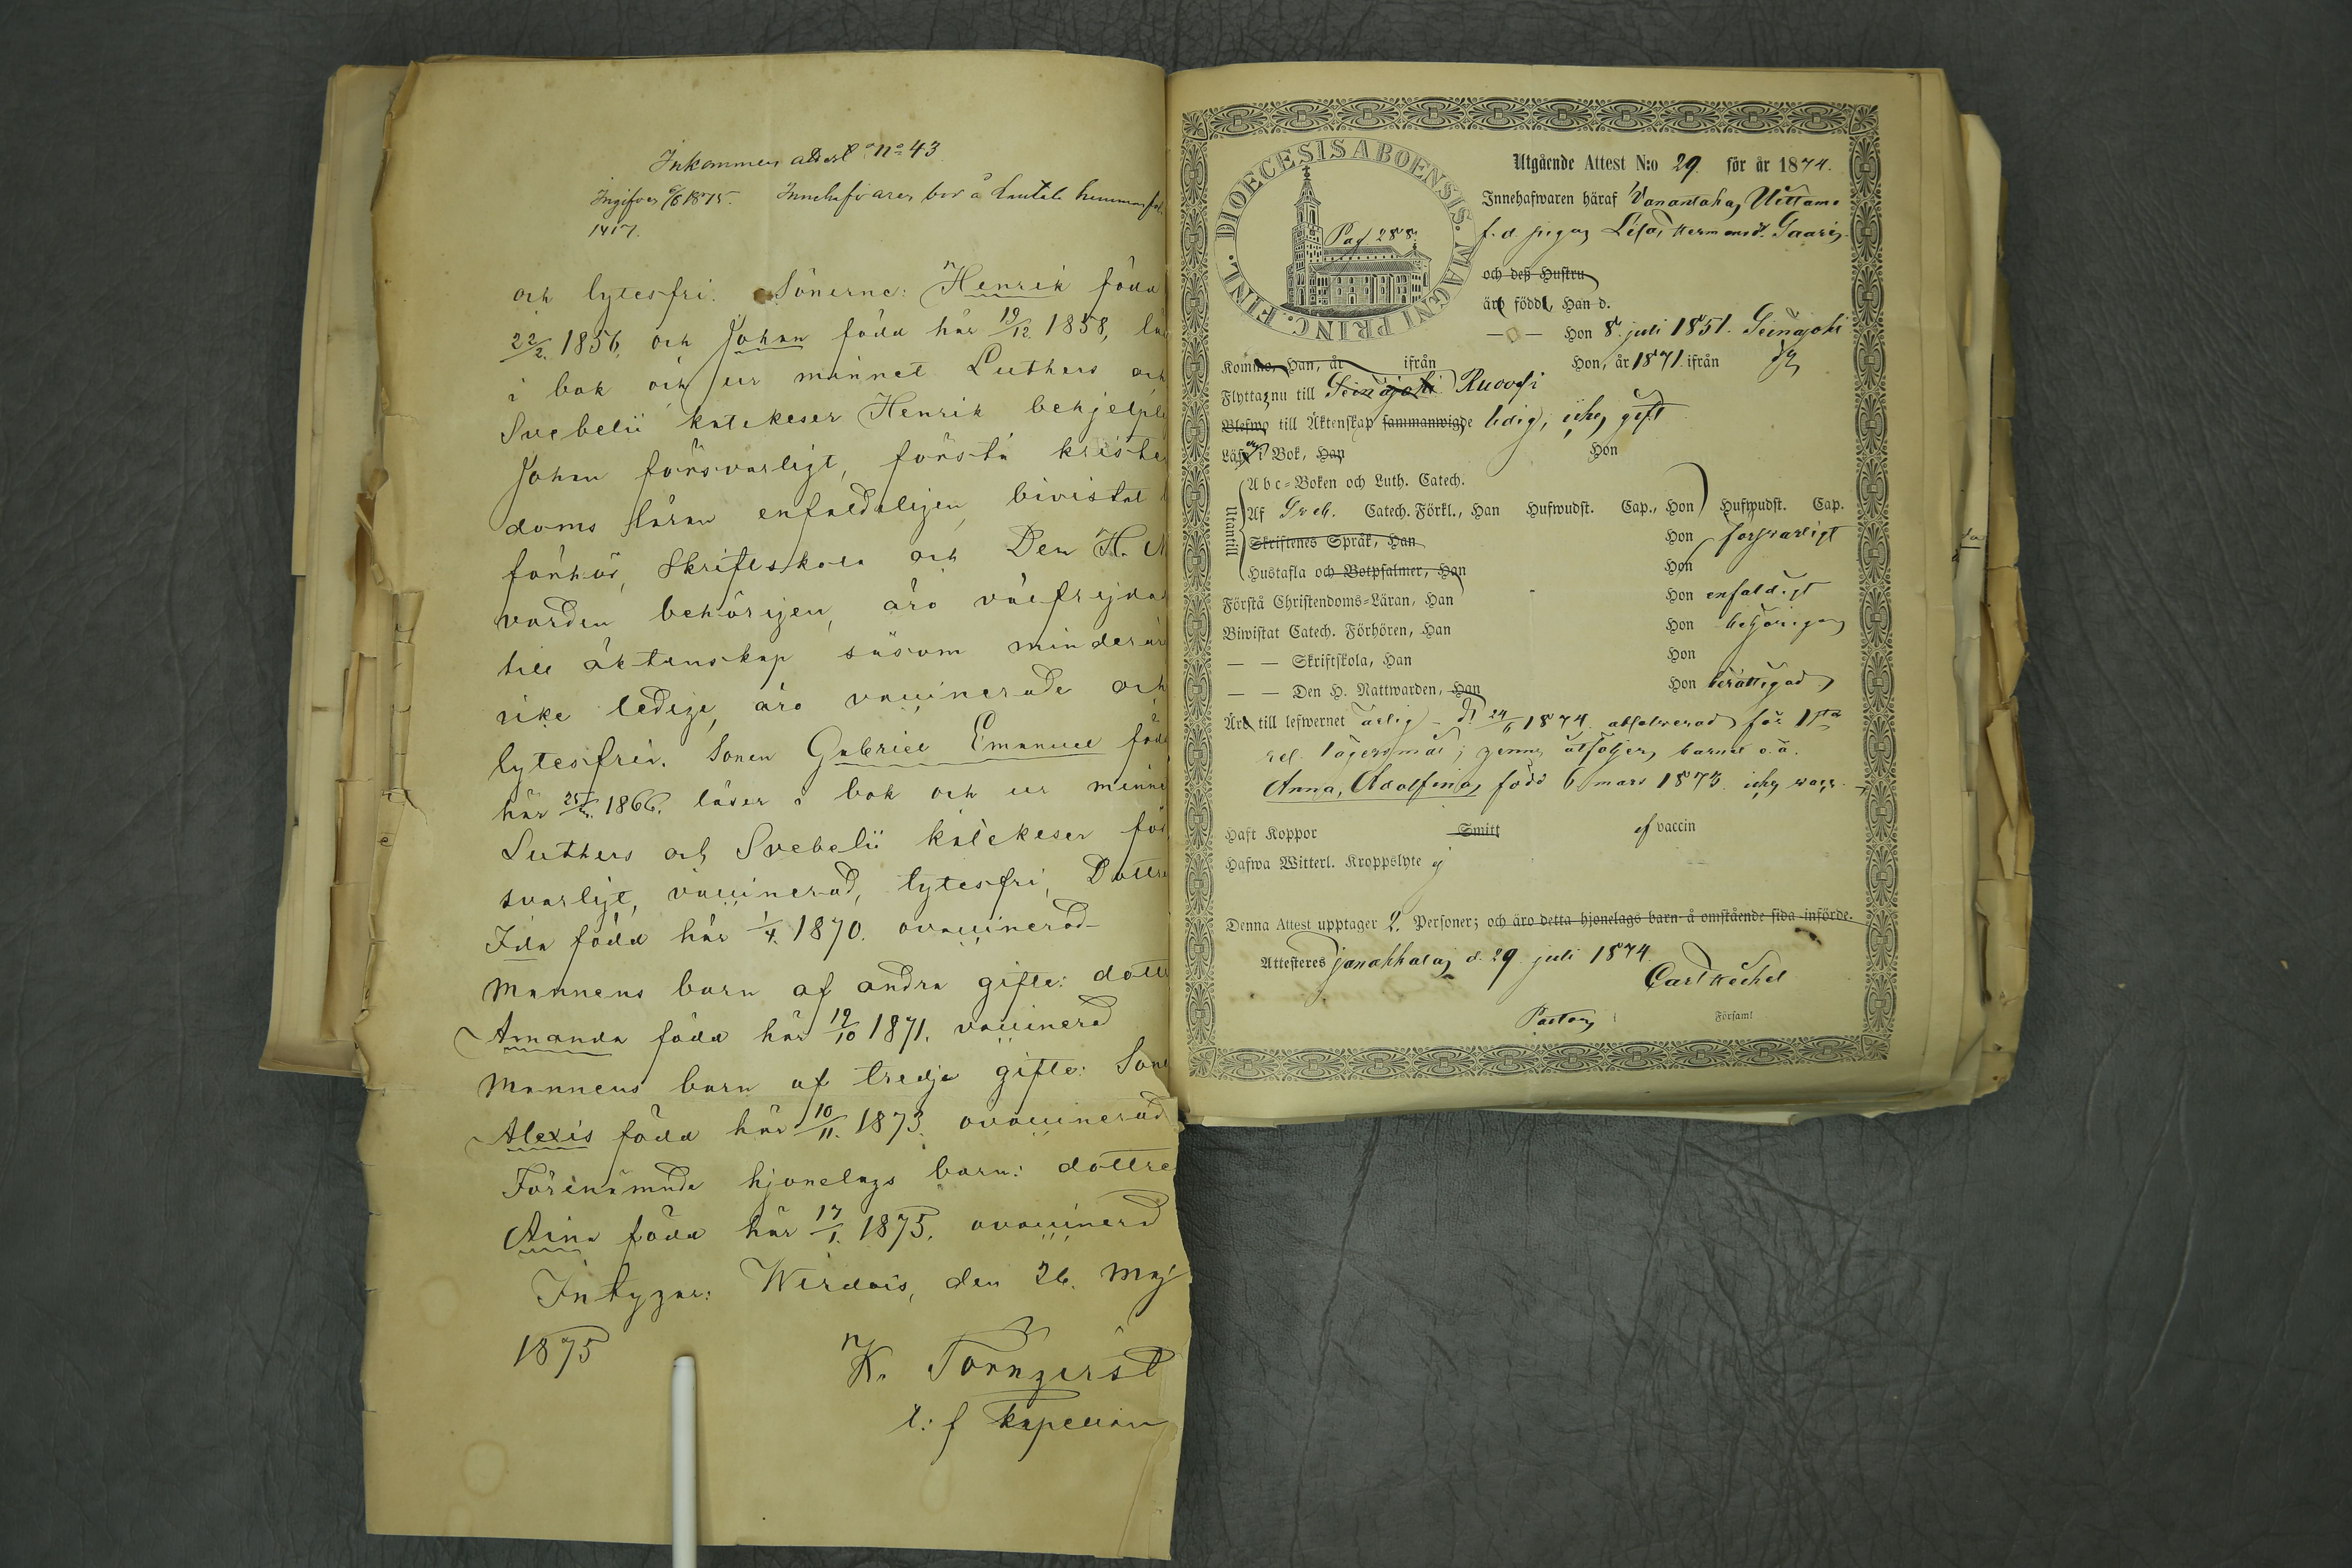 Inkommen attest No 43
Ingifven 6/6 1875. Innehafvaren bor å
1417.
och lytesfri. Sönerne: Henrik född
22/2. 1856, och Johan född här 19/12. 1858,
i bok och ur minnet Luthers och
Svebelii katekeser Henrik behjelpl
Johan försvarligt, förstå kriste
doms läran enfaldeligen, bivistat
förhör, Skriftskola och Den H. N
varden behörigen, äro välfrejdad
till äktenskap såsom minderår
rike ledige, äro vaccinerade och
lytesfrie. Sonen Gabriel Emanuel föd
här 1866, läser i bok och ur minne
Luthers och Svebelii katekeser för
svarligt, vaccinerad, lytesfri, Dottre
Ida född här 1/4. 1870. ovaccinerad
Mannens barn af andra gifte: dott
Amanda född här 19/10 1871. vaccinerad
Mannens barn af tredje gifte: Sone
Alexis född här 10/11. 1873. ovaccinerad
Förenämnde hjonelags barn: dottre
Aina född här 17/1. 1875. ovaccinerad
Intygar: Wirdois, den 26. Maj
1875
K. Törnqvist
t: f kapellan
DIOECESIS ABOENSIS. MAGNI PRINC. FINL.
Pag 288.
Utgående Attest N:o 29 för år 1874.
Innehafwaren häraf Vanantaka, Uittamo
f. d. pigan Lisa, Hermansd. Saari
och deß Hustru
äro född, Han d.
— — Hon 8 juli 1851. Seinäjoki
Komne, Han, år ifrån Hon, år 1871 ifrån
Flytta nu till Seinäjoki Ruovesi
Blefwo till Äktenskap sammanwigde ledig, icke gift
Läsa i Bok, Han Hon
Utantill
Abc-Boken och Luth. Catech.
Af Sveb. Catech. Förkl., Han Hufwudst. Cap., Hon Hufwudst. Cap.
Skriftenes Språk, Han Hon försvarligt
Hustafla och Botpsalmer, Han Hon
Förstå Christendoms-Läran, Han Hon enfaldigt
Biwistat Catech. Förhören, Han Hon behörigen
— — Skriftskola, Han Hon
— — Den H. Nattwarden, Han Hon berättigad
Äro till lefwernet ärlig - d. 24/6 1874 absolverad för 1sta
resl. lägersmål; henne åtföljer barnet o. ä.
Anna, Adolfina, född 6 mars 1873. icke vacc.
Haft Koppor Smitt ej vaccin
Hafwa Witterl. Kroppslyte ej
Denna Attest upptager 2. Personer; och äro detta hjonelags barn å omstående sida införde.
Attesteres Janakkala, d. 29 juli 1874
Carl Heckel
Pastor i Församl